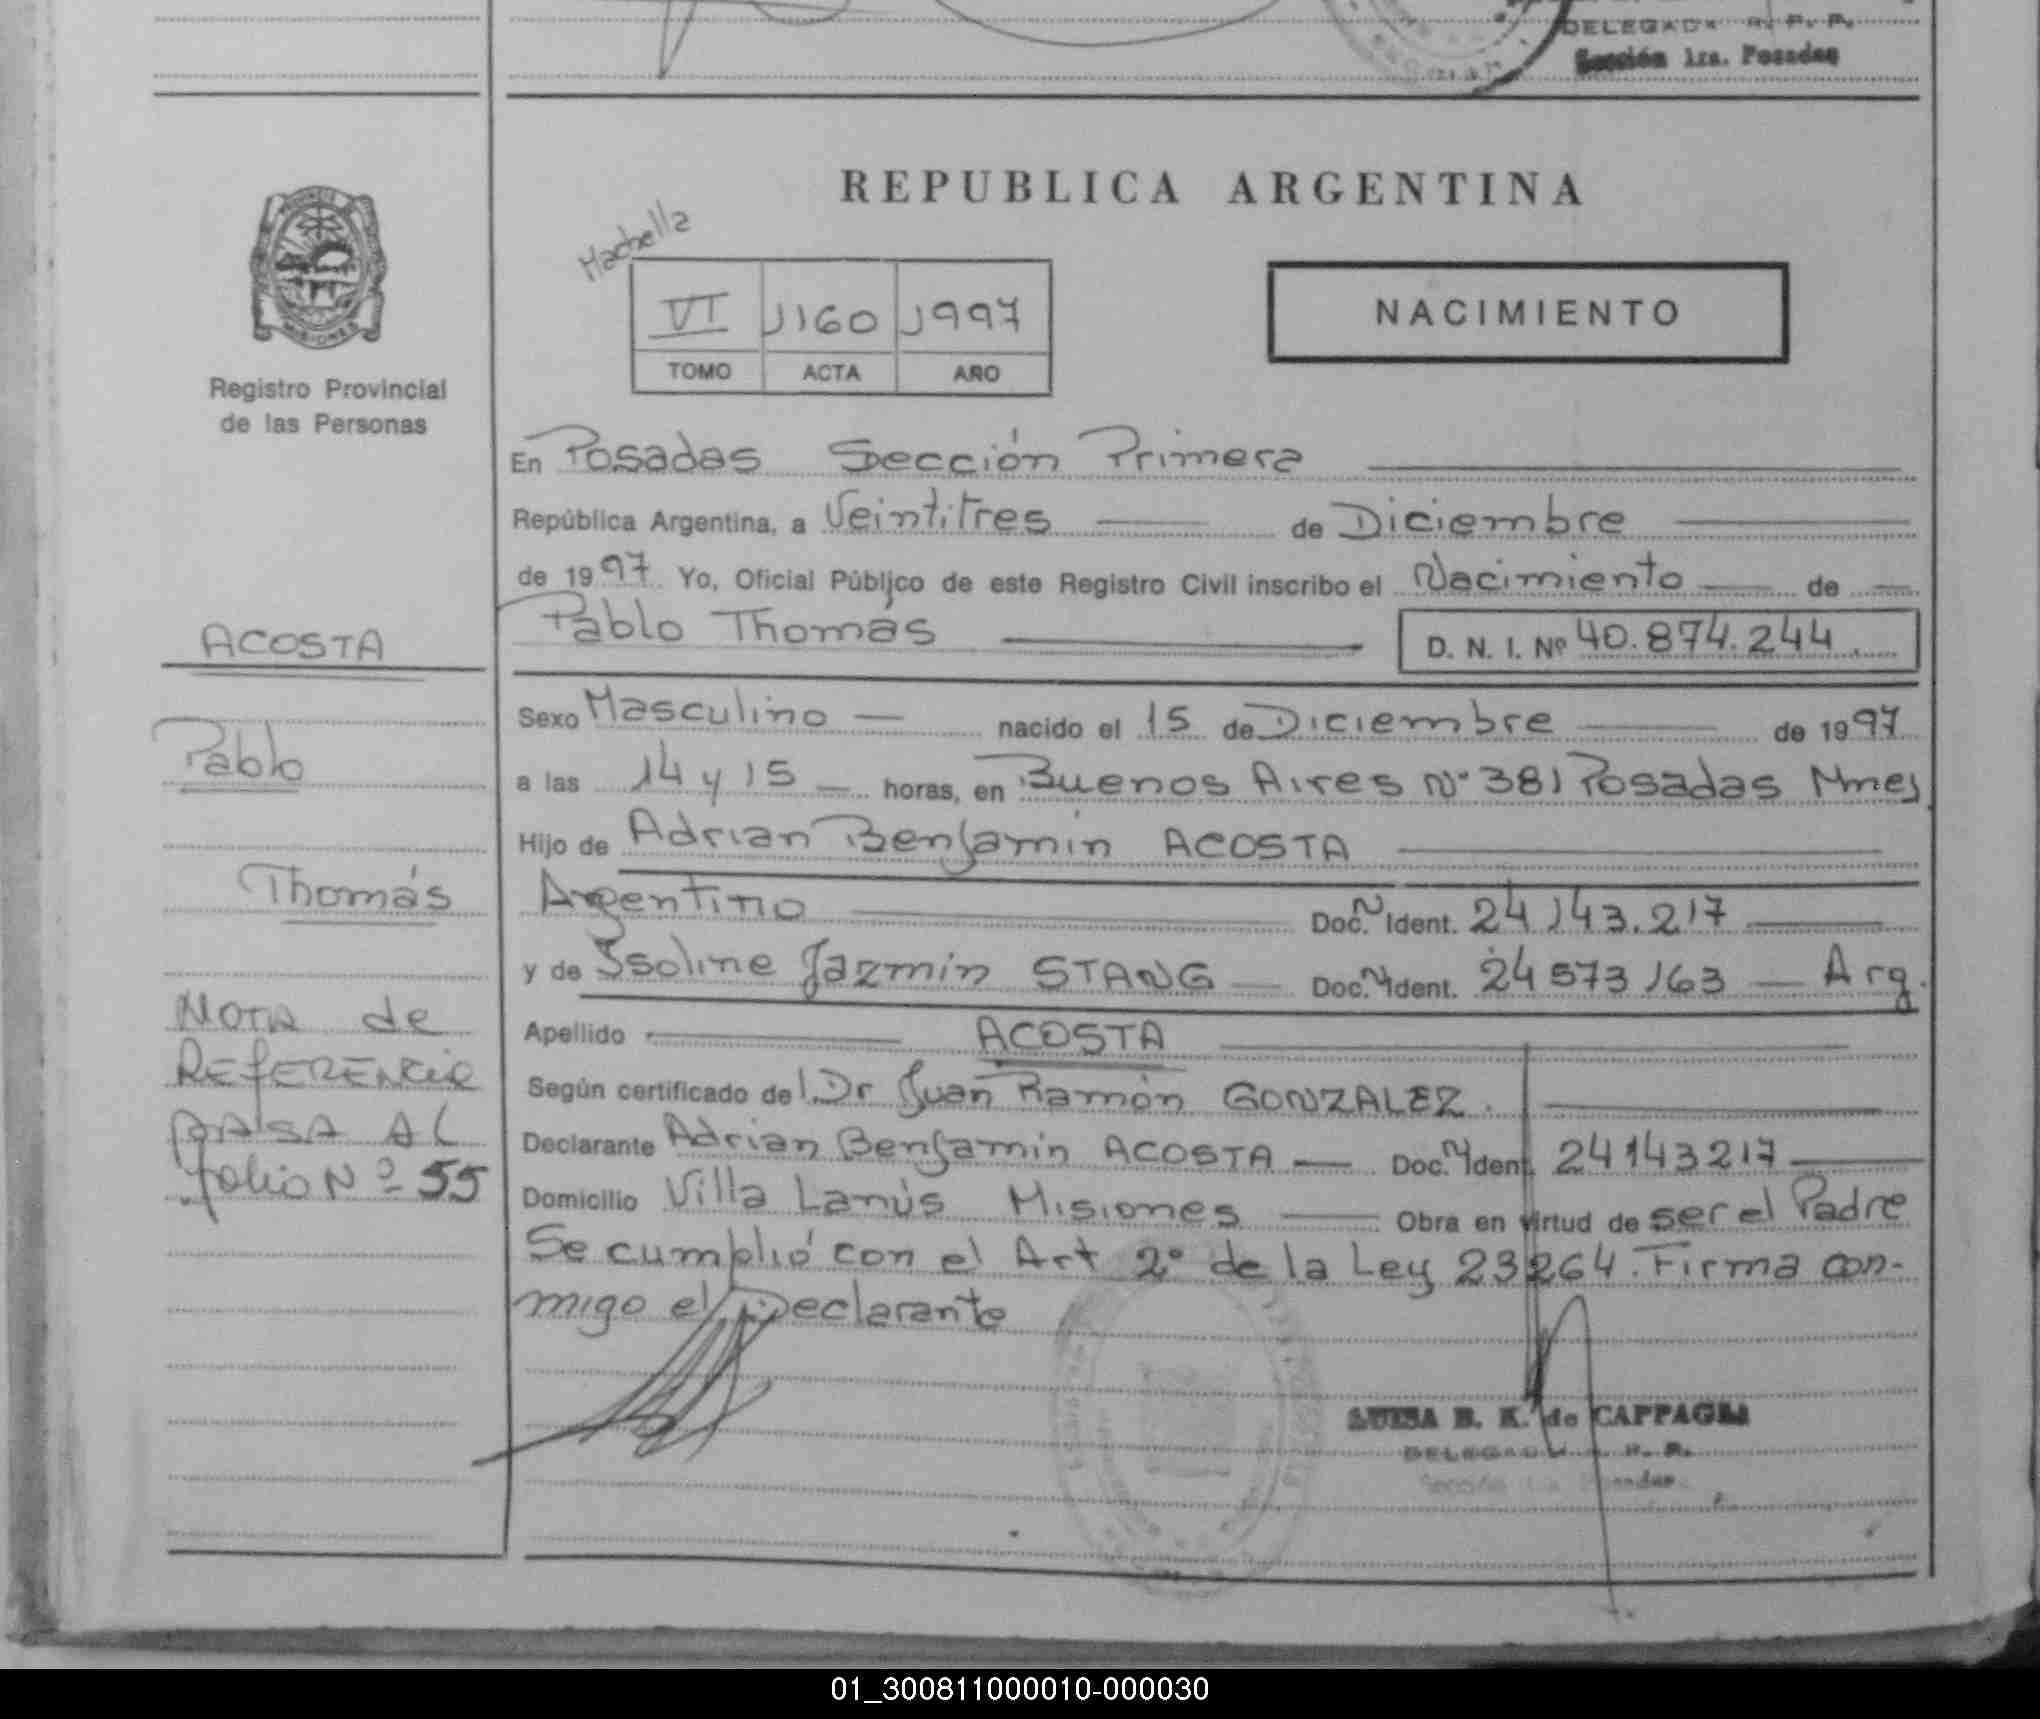 DELEGADA R. P. P.
Sección 1ra. Posadas
REPUBLICA ARGENTINA
Machella
VI 1160 1997
TOMO ACTA AÑO
NACIMIENTO
MISIONES
Registro Provincial
de las Personas
En Posadas Sección Primera
República Argentina, a Veintitres de Diciembre
de 1997 Yo, Oficial Público de este Registro Civil inscribo el Nacimiento de
Pablo Thomás D. N. I. Nº 40.874.244
Sexo Masculino nacido el 15 de Diciembre de 1997
a las 14 y 15 horas, en Buenos Aires Nº 381 Posadas Mnes
Hijo de Adrian Benjamín ACOSTA
Argentino Doc. N Ident. 24.143.217
y de Isoline Jazmín STANG Doc. N Ident. 24 573 163 Arg.
Apellido ACOSTA
Según certificado del Dr Juan Ramón GONZALEZ.
Declarante Adrian Benjamín ACOSTA Doc. N Ident. 24143217
Domicilio Villa Lanús Misiones Obra en virtud de ser el Padre
Se cumplió con el Art 2º de la Ley 23264. Firma con-
migo el Declarante
LUISA B. K. de CAPPAGLI
DELEGADA R. P.
Sección 1ra Posadas
ACOSTA
Pablo
Thomás
NOTA de
REFERENCIA
PASA AL
folio Nº 55
01_300811000010-000030